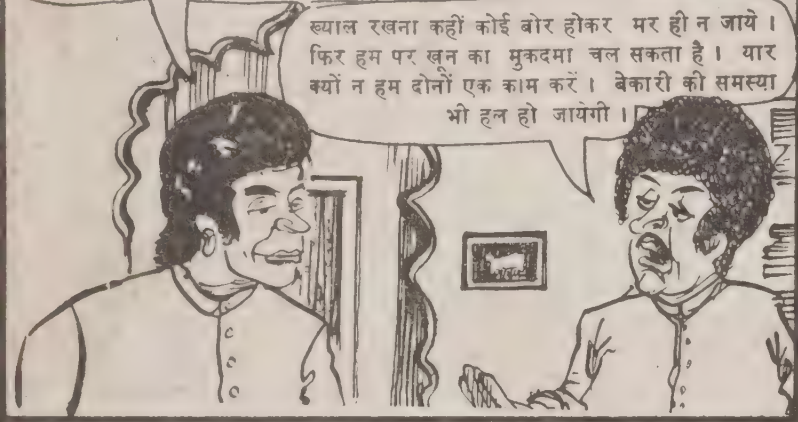 ख्याल रखना कहीं कोई बोर होकर मर ही न जाये ।
फिर हम पर खून का मुकदमा चल सकता है । यार
क्यों न हम दोनों एक काम करें । बेकारी की समस्या
भी हल हो जायेगी ।